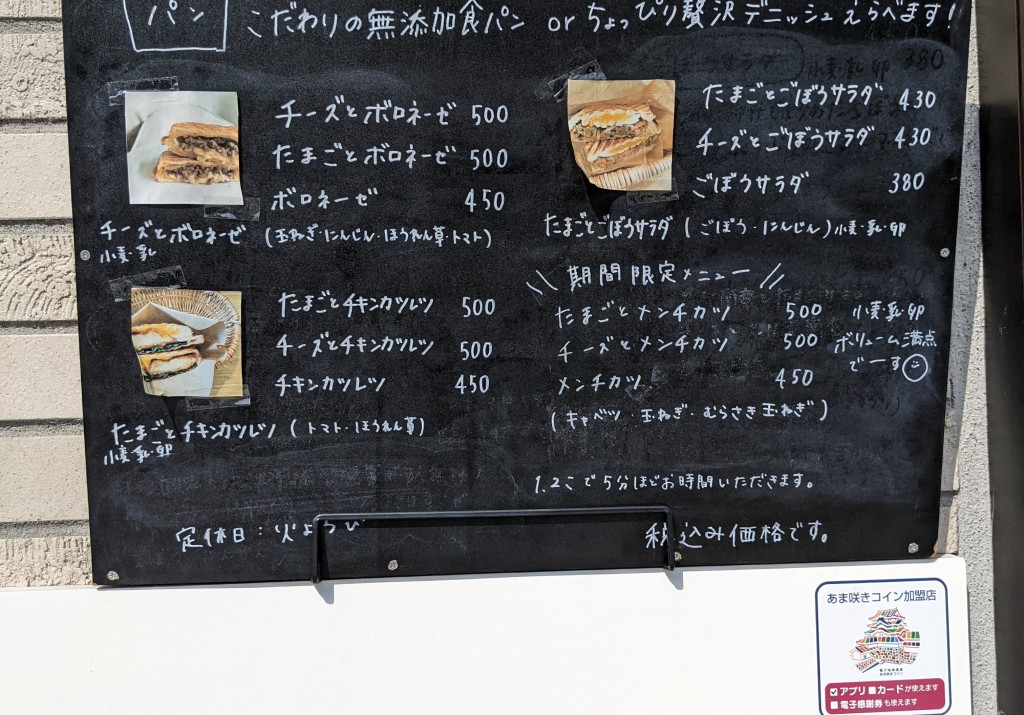 パン
こだわりの無添加食パン orちょっぴり贅沢デニッシュえらべます!
チーズとボロネーゼ 500
たまごとボロネーゼ 500
ボロネーゼ 450
チーズとボロネーゼ (玉ねぎ・にんじん・ほうれん草・トマト)
小麦・乳
たまごとチキンカツレツ 500
チーズとチキンカツレツ 500
チキンカツレツ 450
たまごとチキンカツレツ (トマト・ほうれん草)
小麦・乳・卵
たまごとごぼうサラダ 430
チーズとごぼうサラダ 430
ごぼうサラダ 380
たまごとごぼうサラダ (ごぼう・にんじん)小麦・乳・卵
期間限定メニュー
たまごとメンチカツ 500 小麦・乳・卵
チーズとメンチカツ 500 ボリューム満点
でーす
メンチカツ 450
(キャベツ・玉ねぎ・むらさき玉ねぎ)
1.2こで5分ほどお時間いただきます。
定休日:
税込み価格です。
あま咲きコイン加盟店
電子地域通貨
あま咲きコイン
アプリ カードが使えます
電子感謝券も使えます